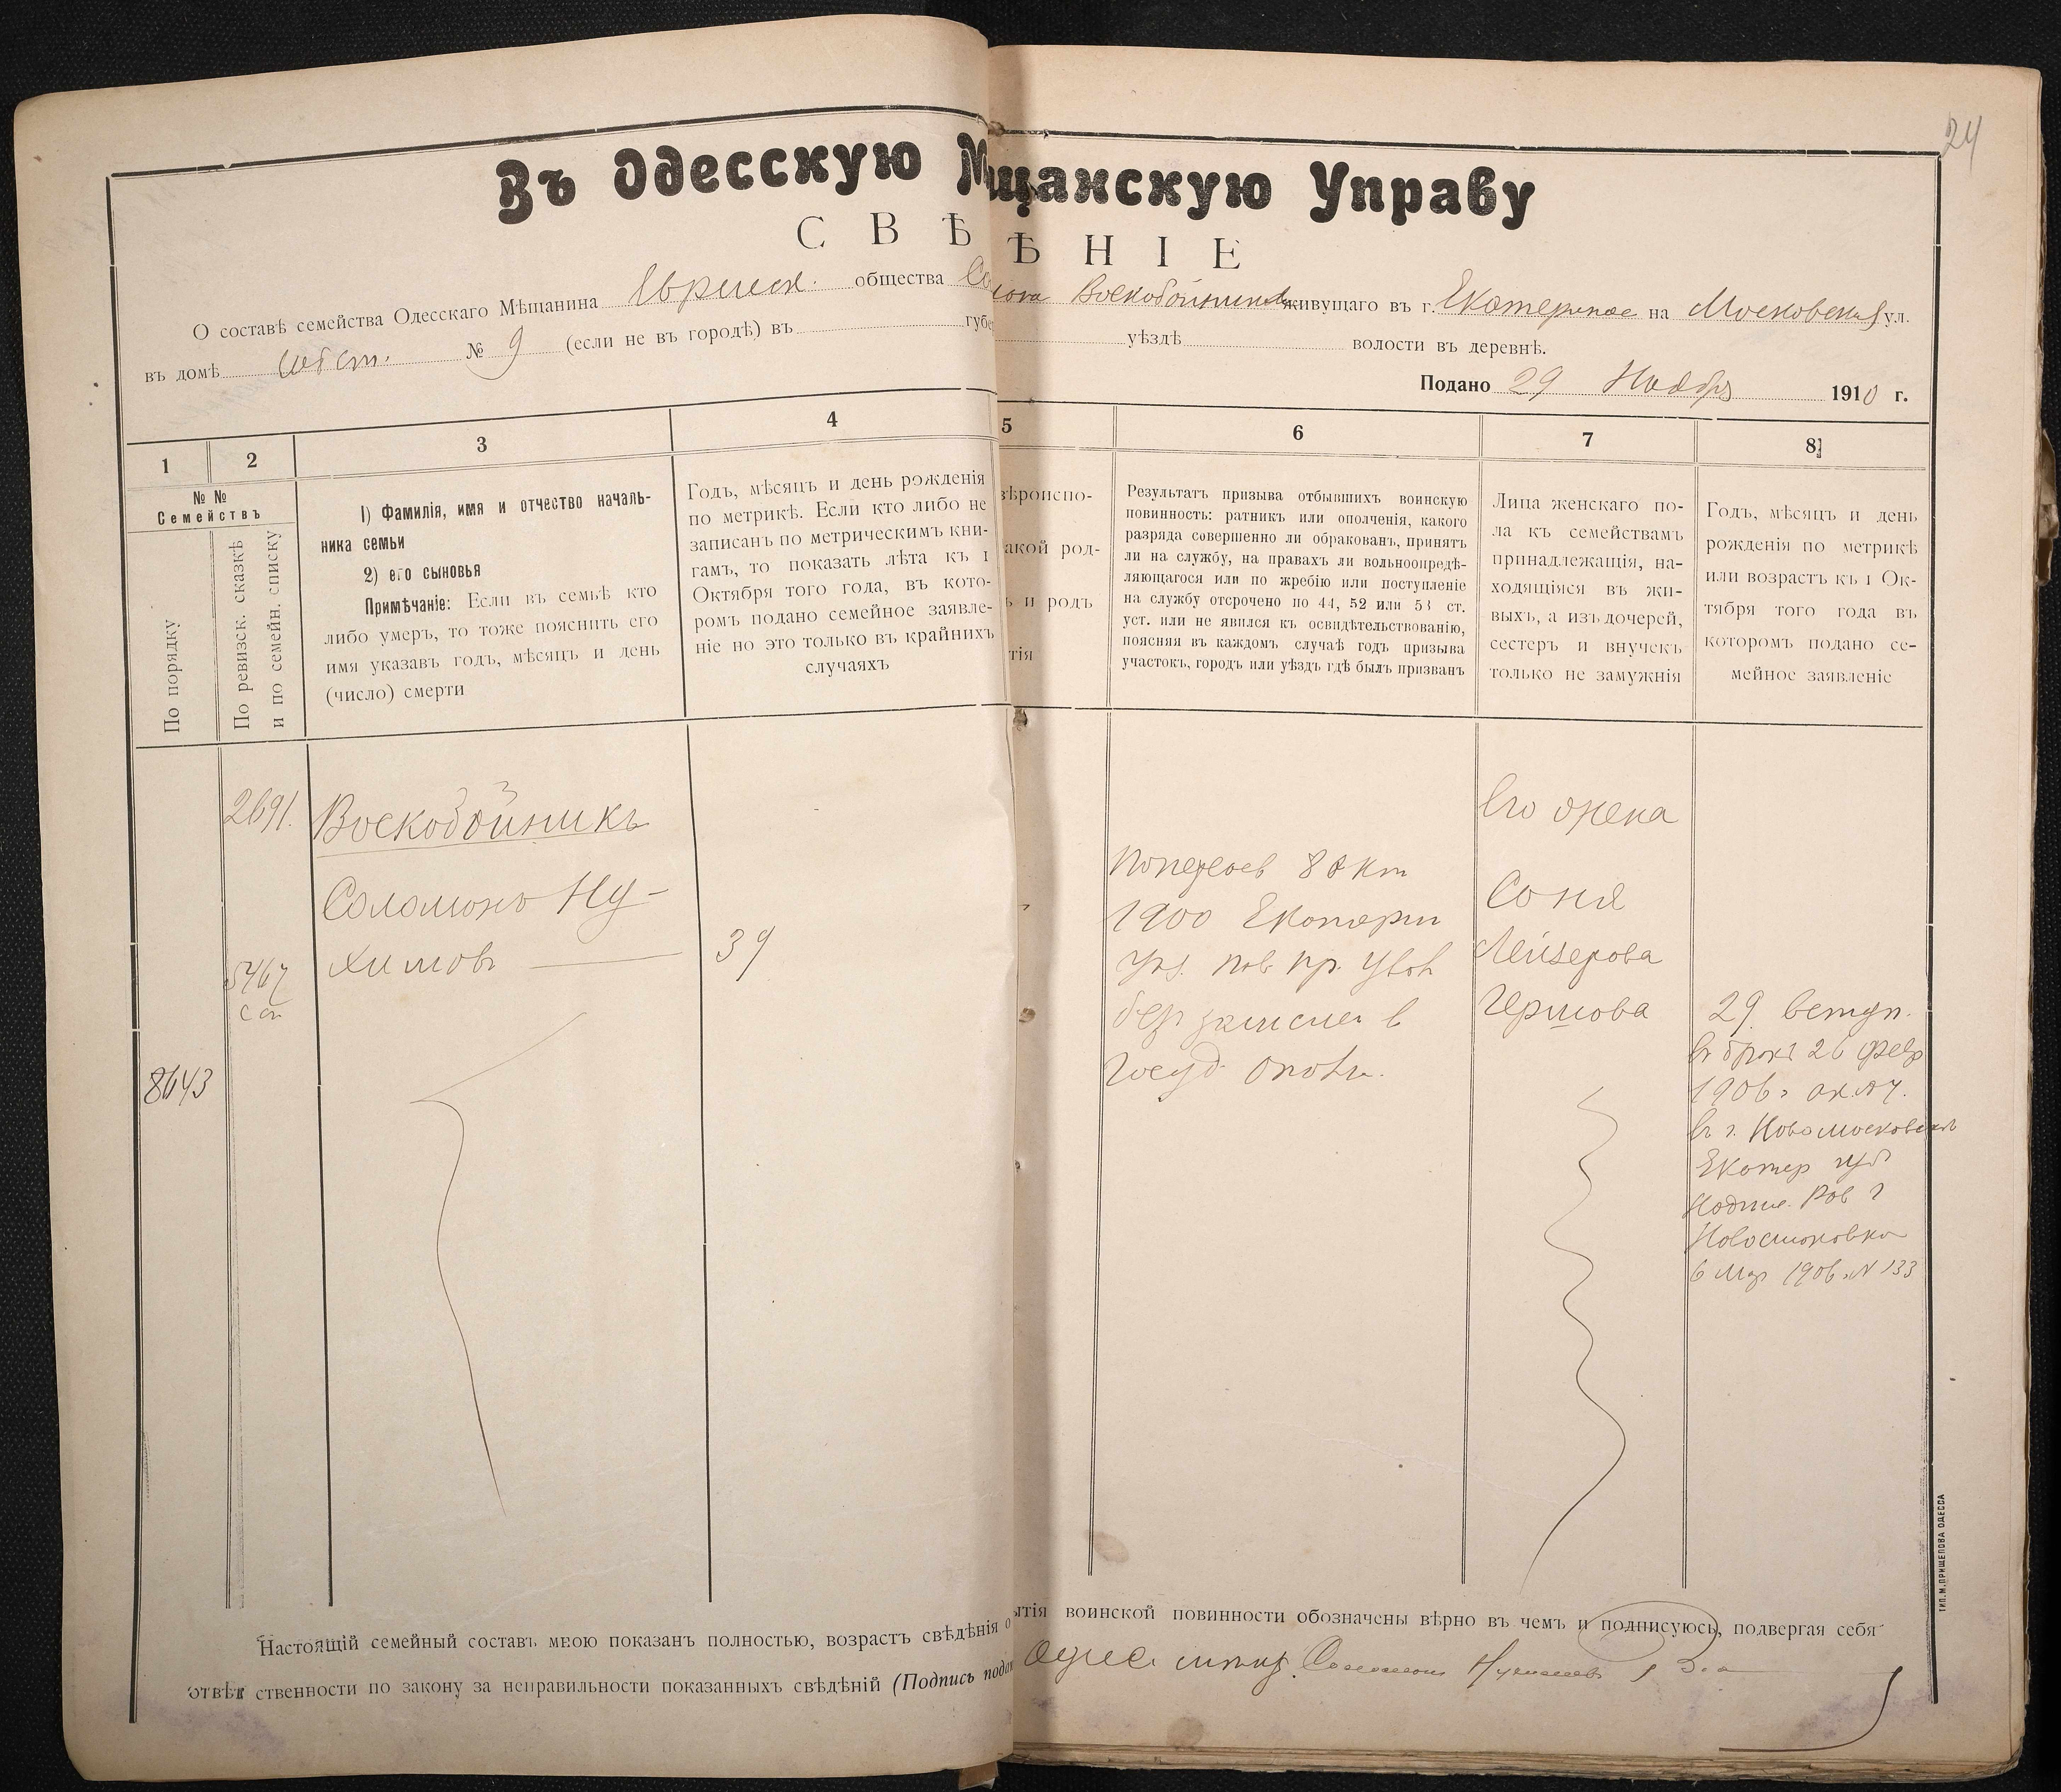 24
Въ Одесскую М щанскую Управу
С В Ѣ Ѣ Н І Е
О составѣ семейства Одесскаго Мѣщанина Еврейск. общества Воскобойника живущаго въ г. Екатеринос на Московской ул.
въ домѣ собст. № 9 (если не въ городѣ) въ губе уѣздѣ волости въ деревнѣ.
Подано 29 Ноября 1910 г.
1 2 3 4 5 6 7 8
№ № Семействъ
По порядку
По ревизск. сказкѣ и по семейн. списку
1) Фамилія, имя и отчество началь-
ника семьи
2) его сыновья
Примѣчаніе: Если въ семьѣ кто
либо умеръ, то тоже пояснить его
имя указавъ годъ, мѣсяцъ и день
(число) смерти
Годъ, мѣсяцъ и день рожденія
по метрикѣ. Если кто либо не
записанъ по метрическимъ кни-
гамъ, то показать лѣта къ 1
Октября того года, въ кото-
ромъ подано семейное заявле-
ніе но это только въ крайнихъ
случаяхъ
ѣроиспо-
акой род-
ь и родъ
тія
Результатъ призыва отбывшихъ воинскую
повинность: ратникъ или ополченія, какого
разряда совершенно ли обракованъ, принятъ
ли на службу, на правахъ ли вольноопредѣ-
ляющагося или по жребію или поступленіе
на службу отсрочено по 44, 52 или 53 ст.
уст. или не явился къ освидѣтельствованію,
поясняя въ каждомъ случаѣ годъ призыва
участокъ, городъ или уѣздъ гдѣ былъ призванъ
Лица женскаго по-
ла къ семействамъ
принадлежащія, на-
ходящіяся въ жи-
выхъ, а изъ дочерей,
сестеръ и внучекъ
только не замужнія
Годъ, мѣсяцъ и день
рожденія по метрикѣ
или возрастъ къ 1 Ок-
тября того года въ
котором подано се-
мейное заявленіе
2691.
Воскобойникъ
Соломонъ Ну-
химовъ
5467
сп
8643
39
1900 Екатерин
Его жена
Соня
Лейзерова
Гершова
29 вступ.
въ бракъ 26 февр
1906 г
въ г. Новомосковскъ
Екатер губ
6 Мар 1906 N 133
Настоящій семейный составъ мною показанъ полностью, возрастъ свѣдѣнія о ытія воинской повинности обозначены вѣрно въ чемъ и подписуюсь, подвергая себя
отвѣт ственности по закону за неправильности показанныхъ свѣдѣній (Подпись подав Одес мѣщ. Соломонъ Нухимовъ
ТИП. М. ПРИЩЕПОВА ОДЕССА